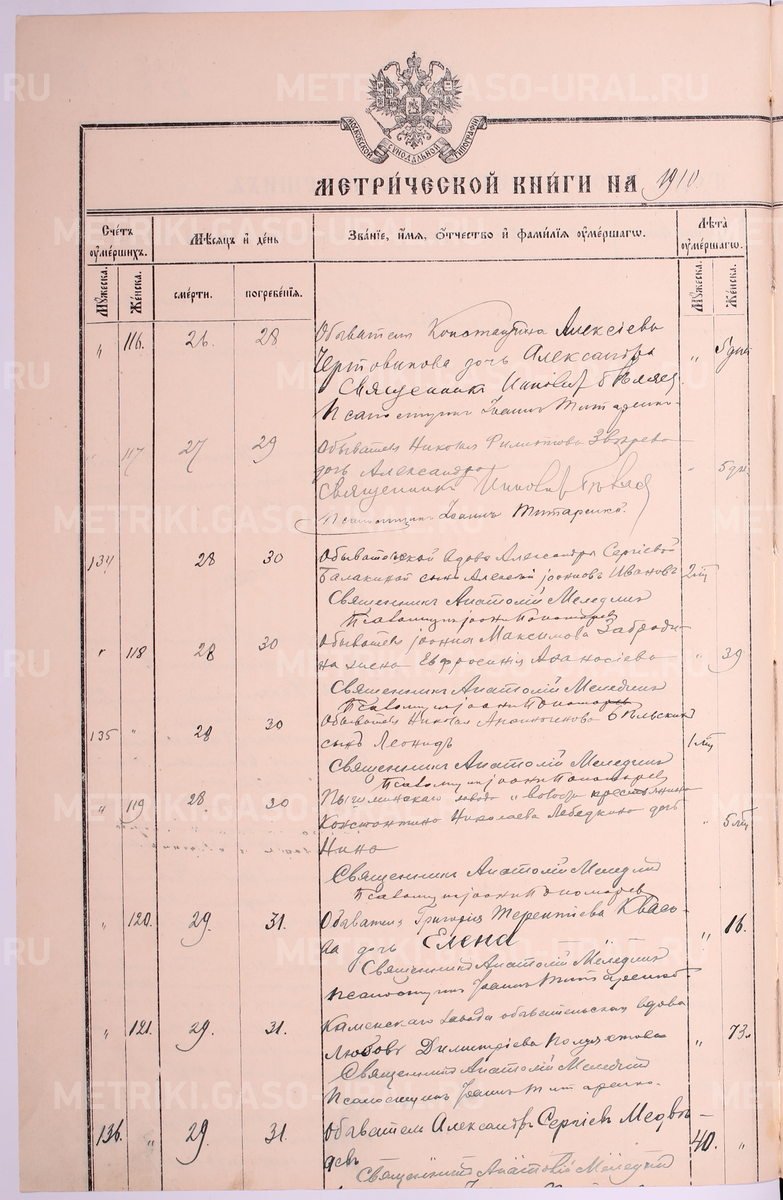 МОСКОВСКОЙ СѴНОДАЛЬНОЙ ТИПОГРАФІИ
МЕТРИ́ЧЕСКОЙ КНИ́ГИ НА 1910.
Счетъ оумершихъ.
Мѣсяцъ и день
Званіе, имя, отчество и фамилія оумершагѡ.
Лѣта оумершагѡ.
Мужеска.
Женска.
смерти.
погребенія.
Мужеска.
Женска.
" 116. 26. 28 Обыватель Константина Алексіева
Чертовикова дочь Александра " 5 дн.
Священникъ
Псаломщикъ Іоаннъ Титаренко
117 27 29 Обывателя Николая Филиппова Звѣрева
дочь Александра " 5 дн.
Священникъ
Псаломщикъ Іоаннъ Титаренко.
134 28 30 Обывательской вдовы Александры Сергіевой
Балакиной сынъ Алексій Ивановъ 2 м
Священникъ Анатолій Меледин
Псаломщикъ Іоаннъ Пономарев
" 118 28 30 Обывателя Іоанна Максимова Заброди-
на жена Евфросинія Афанасіева " 39
Священникъ Анатолій Меледин
Псаломщикъ Іоаннъ Пономарев
135 " 28 30 Обывателя Николая Бѣльских
сынъ Леонидъ 1 м
Священникъ Анатолій Меледин
Псаломщикъ Іоаннъ Пономарев
" 119 28. 30 Пышминскаго завода крестьянина
Константина Николаева Лебедкина дочь " 5 м
Нина
Священникъ Анатолій Меледин
Псаломщикъ Іоаннъ Пономарев
" 120. 29. 31. Обывателя Григорія Терентіева Квасо-
ва дочь Елена " 16.
Священникъ Анатолій Меледин
Псаломщикъ Іоаннъ Титаренко
" 121. 29. 31. Каменскаго завода обывательская вдова
Любовь Димитріева Полуяктова " 73.
Священникъ Анатолій Меледин
Псаломщикъ Іоаннъ Титаренко.
136. " 29. 31. Обыватель Александръ Сергіевъ Медвѣ-
девъ 40. "
Священникъ Анатолій Меледин
METRIKI.GASO-URAL.RU